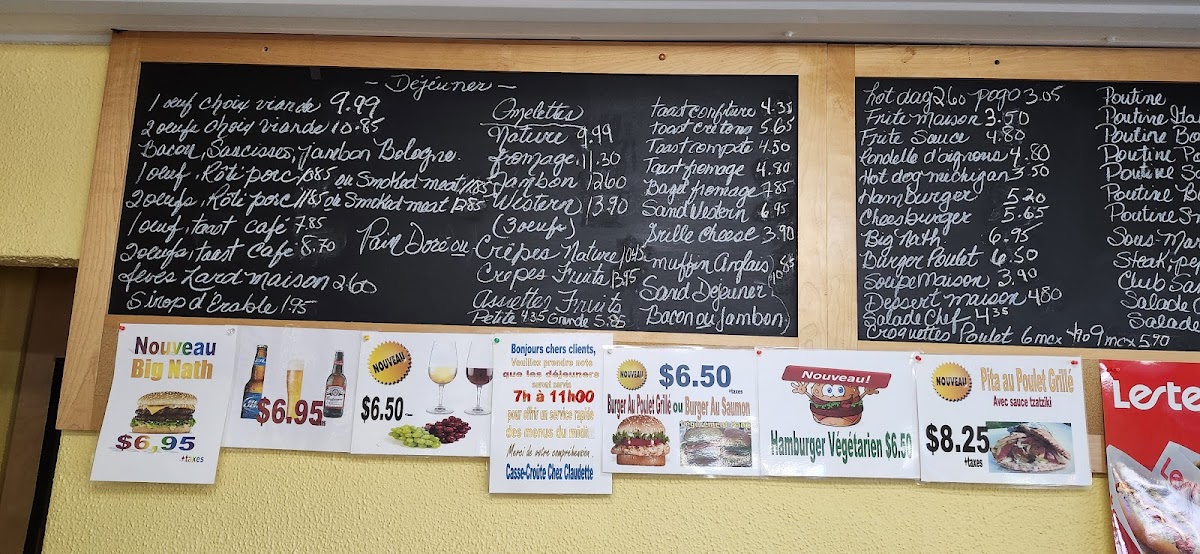 - Déjeuner -
1 oeuf choix viande 9.99
2 oeufs choix viande 10.85
Bacon, Saucisses, Jambon Bologne.
1 oeuf, Rôti porc 10.85 ou Smoked meat 11.85
2 oeufs, Rôti porc 11.85 ou Smoked meat 12.85
1 oeuf, toast café 7.85
2 oeufs, toast café 8.70
Fèves Lard maison 2.60
Sirop d'Erable 1.95
Pain Doré ou
Omelettes
Nature 9.99
fromage 11.30
Jambon 12.60
Western 13.90
(3 oeufs)
Crêpes Nature 10.45
Crêpes Fruits 13.95
Assiettes Fruits
Petite 4.35 Grande 5.95
Toast confiture 4.35
toast cretons 5.65
Toast compote 4.50
Toast fromage 4.80
Bagel fromage 7.85
Sand Western 6.95
Grille cheese 3.90
muffin Anglais
Sand Dejeuner 10.85
Bacon ou Jambon
hot dog 2.60 pogo 3.05
Frite maison 3.50
Frite Sauce 4.80
Rondelle d'oignons 4.80
Hot dog michigan 3.50
Hamburger 5.20
Cheesburger 5.65
Big Nath 6.95
Burger Poulet 6.50
Soupe Maison 3.90
Dessert maison 4.80
Salade Chef 4.35
Croquettes Poulet 6 mcx 4.70 9 mcx 5.90
Poutine
Poutine Ita
Poutine
Poutine
Poutine
Poutine
Poutine
Sous-Ma
Steak, pe
Club Sa
Salade
Salade
Nouveau
Big Nath
$6.95
+taxes
$6.95
NOUVEAU
$6.50
Bonjours chers clients,
Veuillez prendre note
que les déjeuners
seront servis
7h à 11h00
pour offrir un service rapide
des menus du midi.
Merci de votre compréhension.
Casse-Croûte Chez Claudette
NOUVEAU
$6.50
+taxes
Burger Au Poulet Grillé ou Burger Au Saumon
Nouveau!
Hamburger Végétarien $6.50
NOUVEAU
Pita au Poulet Grillé
Avec sauce tzatziki
$8.25
+taxes
Leste
Le